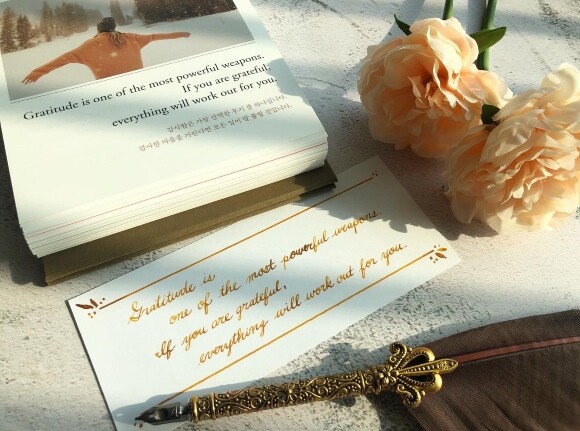 Gratitude is one of the most powerful weapons.
If you are grateful,
everything will work out for you.
감사함은 가장 강력한 무기 중 하나입니다.
감사한 마음을 가진다면 모든 일이 잘 풀릴 것입니다.
Gratitude is
one of the most powerful weapons
If you are grateful,
everything will work out for you.